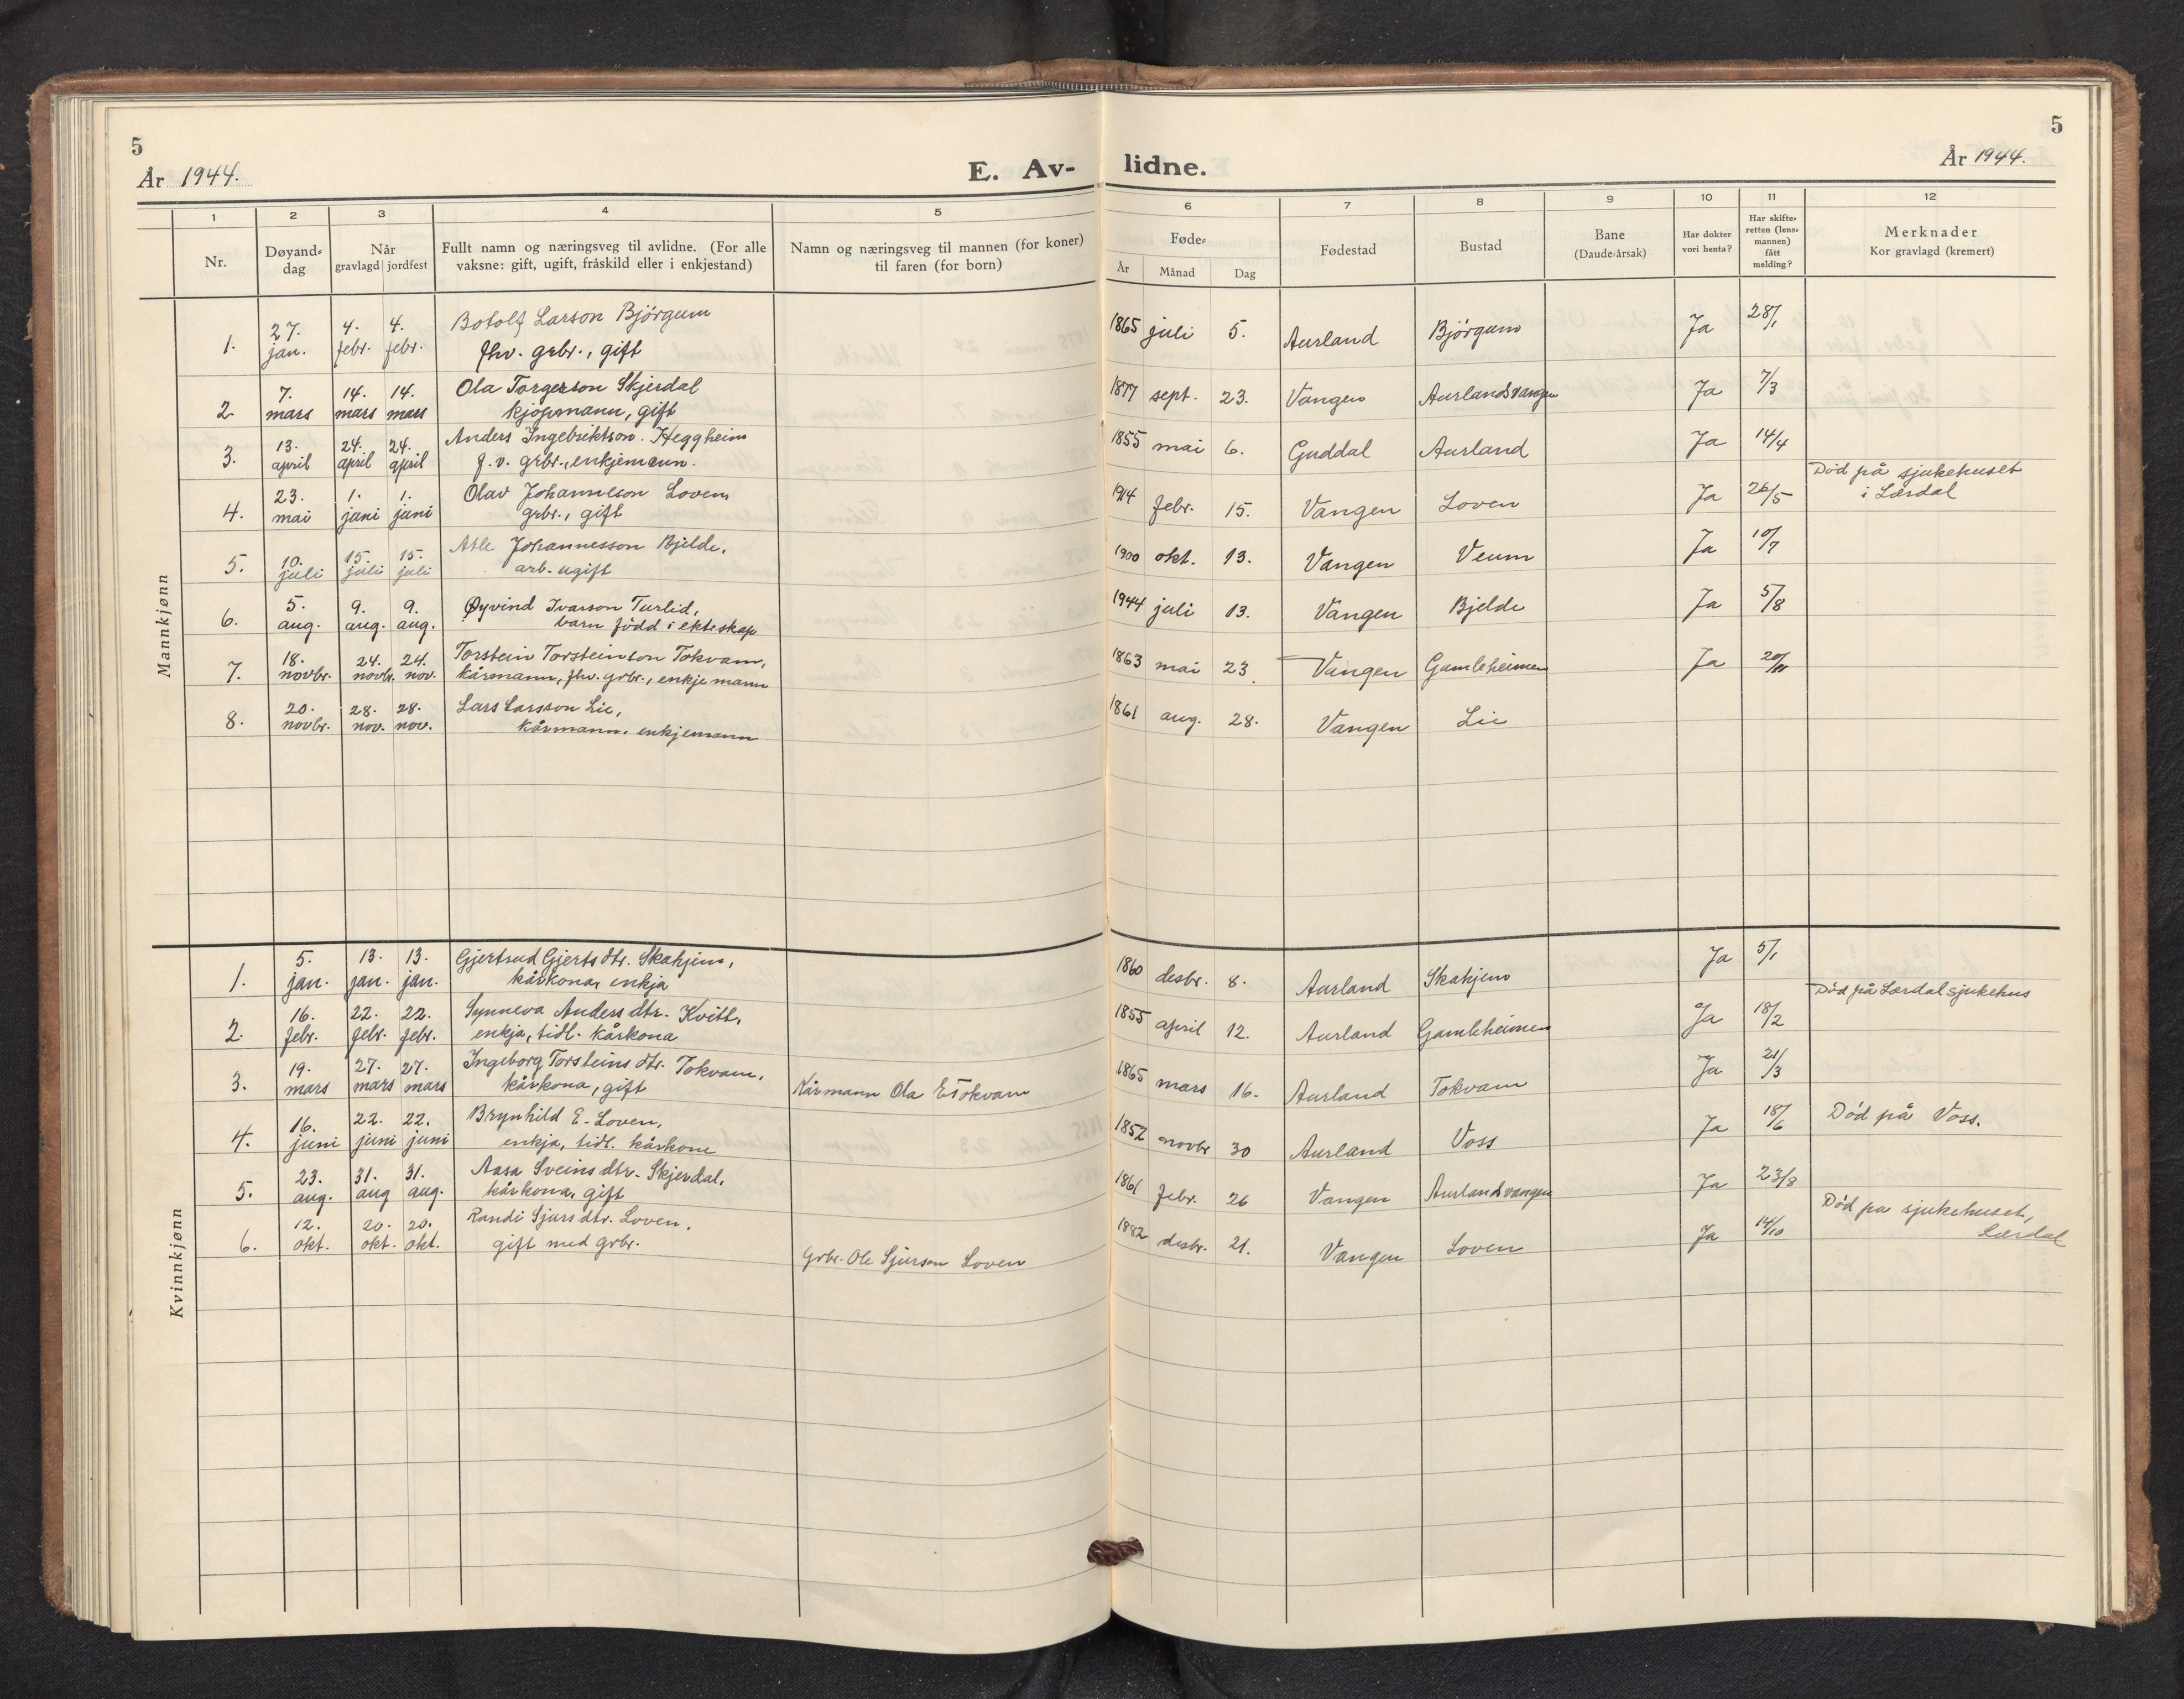 5
År 1944.
E. Av-
1
2
3
4
5
Nr.
Døyand=
dag
Når
gravlagd jordfest
Fullt namn og næringsveg til avlidne. (For alle
vaksne: gift, ugift, fråskild eller i enkjestand)
Namn og næringsveg til mannen (for koner)
til faren (for born)
5
År 1944.
lidne.
6
7
8
9
10
11
12
Føde=
År
Månad
Dag
Fødestad
Bustad
Bane
(Daude=årsak)
Har dokter
vori henta?
Har skifte=
retten (lens=
mannen)
fått
melding?
Merknader
Kor gravlagd (kremert)
Mannkjønn
1. 27. jan. 4. febr. 4. febr. Botolf Larson Bjørgum
fhv. grbr., gift
1865 juli 5. Aurland Bjørgum Ja 28/1
2. 7. mars 14. mars 14. mars Ola Torgerson Skjerdal
kjøpmann, gift
1877 sept. 23. Vangen Aurlandsvangen Ja 7/3
3. 13. april 24. april 24. april Anders Ingebriktson. Heggheim
f.v. grbr., enkjemann.
1855 mai 6. Guddal Aurland Ja 14/4
4. 23. mai 1. juni 1. juni Olav Johanneson Loven,
grbr., gift
1914 febr. 15. Vangen Loven Ja 26/5 Død på sjukehuset
i Lærdal
5. 10. juli 15. juli 15. juli Atle Johannesson Bjelde,
arb. ugift
1900 okt. 13. Vangen Veum Ja 10/7
6. 5. aug. 9. aug. 9. aug. Øyvind Ivarson Turlid,
barn född i ekteskap
1944 juli 13. Vangen Bjelde Ja 5/8
7. 18. novbr. 24. novbr. 24. nov. Torstein Torsteinson Tokvam,
kårmann, fhv. grbr., enkjemann
1863 mai 23. Vangen Gamleheimen Ja 20/11
8. 20. novbr. 28. nov. 28. nov. Lars Larsson Lie,
kårmann, enkjemann
1861 aug. 28. Vangen Lie
Kvinnkjønn
1. 5. jan. 13. jan. 13. jan. Gjertrud Gjertsdtr. Skahjem,
kårkona, enkja
1860 desbr. 8. Aurland Skahjem Ja 5/1
2. 16. febr. 22. febr. 22. febr. Synneva Andersdtr. Kvitt,
enkja, tidl. kårkona
1855 april 12. Aurland Gamleheimen Ja 18/2 Død på Lærdal sjukehus
3. 19. mars 27. mars 27. mars Ingeborg Torsteinsdtr. Tokvam,
kårkona, gift
Kårmann Ola E Tokvam
1865 mars 16. Aurland Tokvam Ja 21/3
4. 16. juni 22. juni 22. juni Brynhild E. Loven,
enkja, tidl. kårkone
1852 novbr 30 Aurland Voss Ja 18/6 Død på Voss.
5. 23. aug. 31. aug 31. aug. Aasa Sveinsdtr. Skjerdal,
kårkona, gift
1861 febr. 26 Vangen Aurlandsvangen Ja 23/8
6. 12. okt. 20. okt. 20. okt. Randi Sjursdtr. Loven.
gift med grbr.
Grbr. Ole Sjurson Loven
1882 desbr. 21. Vangen Loven Ja 14/10 Død på sjukehuset,
Lærdal